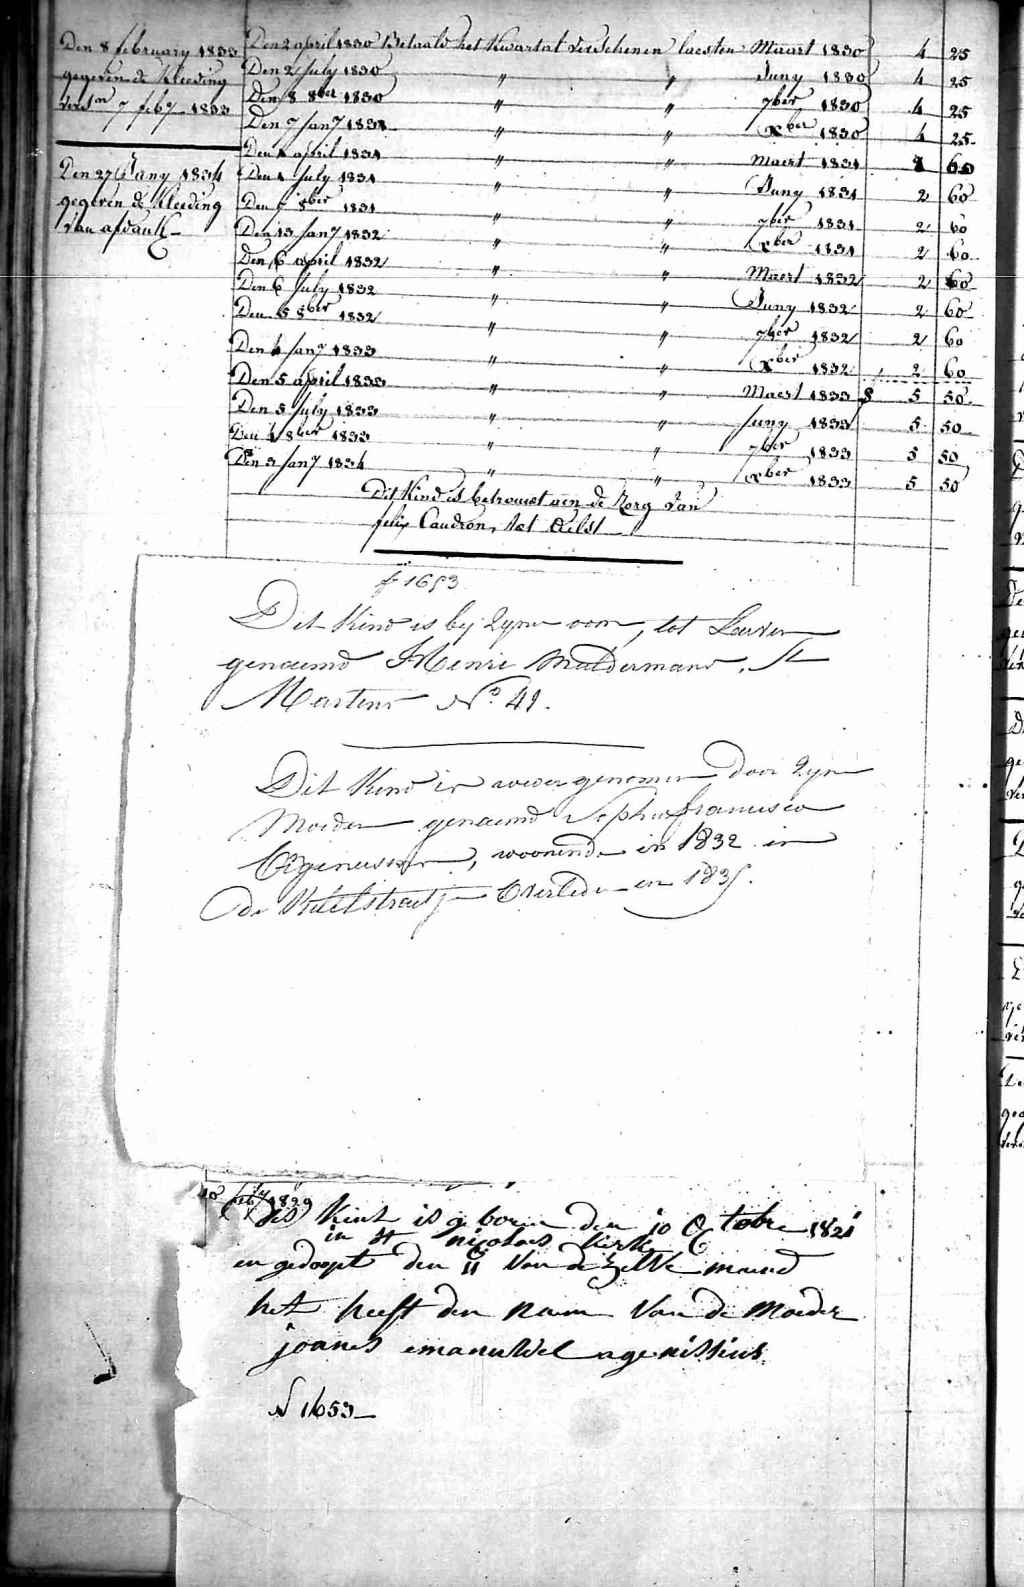 Den 8 february 1833
gegeven de Kleeding
verst.en 7 feb.y 1833
Den 27 Jany 1834
gegeven de Kleeding
van afdank
Den 2 april 1830 Betaald het Kwartal verschenen laesten Maart 1830 4 25
Den 2 july 1830 " " Juny 1830 4 25
Den 8 8ber 1830 " " 7ber 1830 4 25
Den 7 jan.y 1831 " " xber 1830 4 25
Den 1 april 1831 " " Maert 1831 2 60
Den 1 july 1831 " " Juny 1831 2 60
Den 5 8ber 1831 " " 7ber 1831 2 60
Den 13 jan.y 1832 " " xber 1831 2 60
Den 6 april 1832 " " Maert 1832 2 60
Den 6 july 1832 " " Juny 1832 2 60
Den 5 8ber 1832 " " 7ber 1832 2 60
Den 4 jan.y 1833 " " xber 1832 2 60
Den 5 april 1833 " " Maert 1833 5 50
Den 5 july 1833 " " juny 1833 5 50
Den 4 8ber 1833 " " 7ber 1833 5 50
Den 3 jan.y 1834 " " xber 1833 5 50
Dit Kind is betrouwt aen de Zorg van
felix Caudron, tot Aelst
N 1653
Dit Kind is by zynen oom, tot Leuven
genaemd Henri Muldermans, St
Martens N° 41.
Dit Kind is weder genomen door zyne
Moeder genaemd Sophia francisca
woonende in 1832 in
de straetje Overleden en 1835.
10 feb.y 1829
Dis Kint is geboren den 10 Octobre 1821
in St nicolas Kerk
en gedoopt den 11 Van de Zelve maend
het heeft den naem Van de Moeder
joanes emanuwel agenissius
N 1653